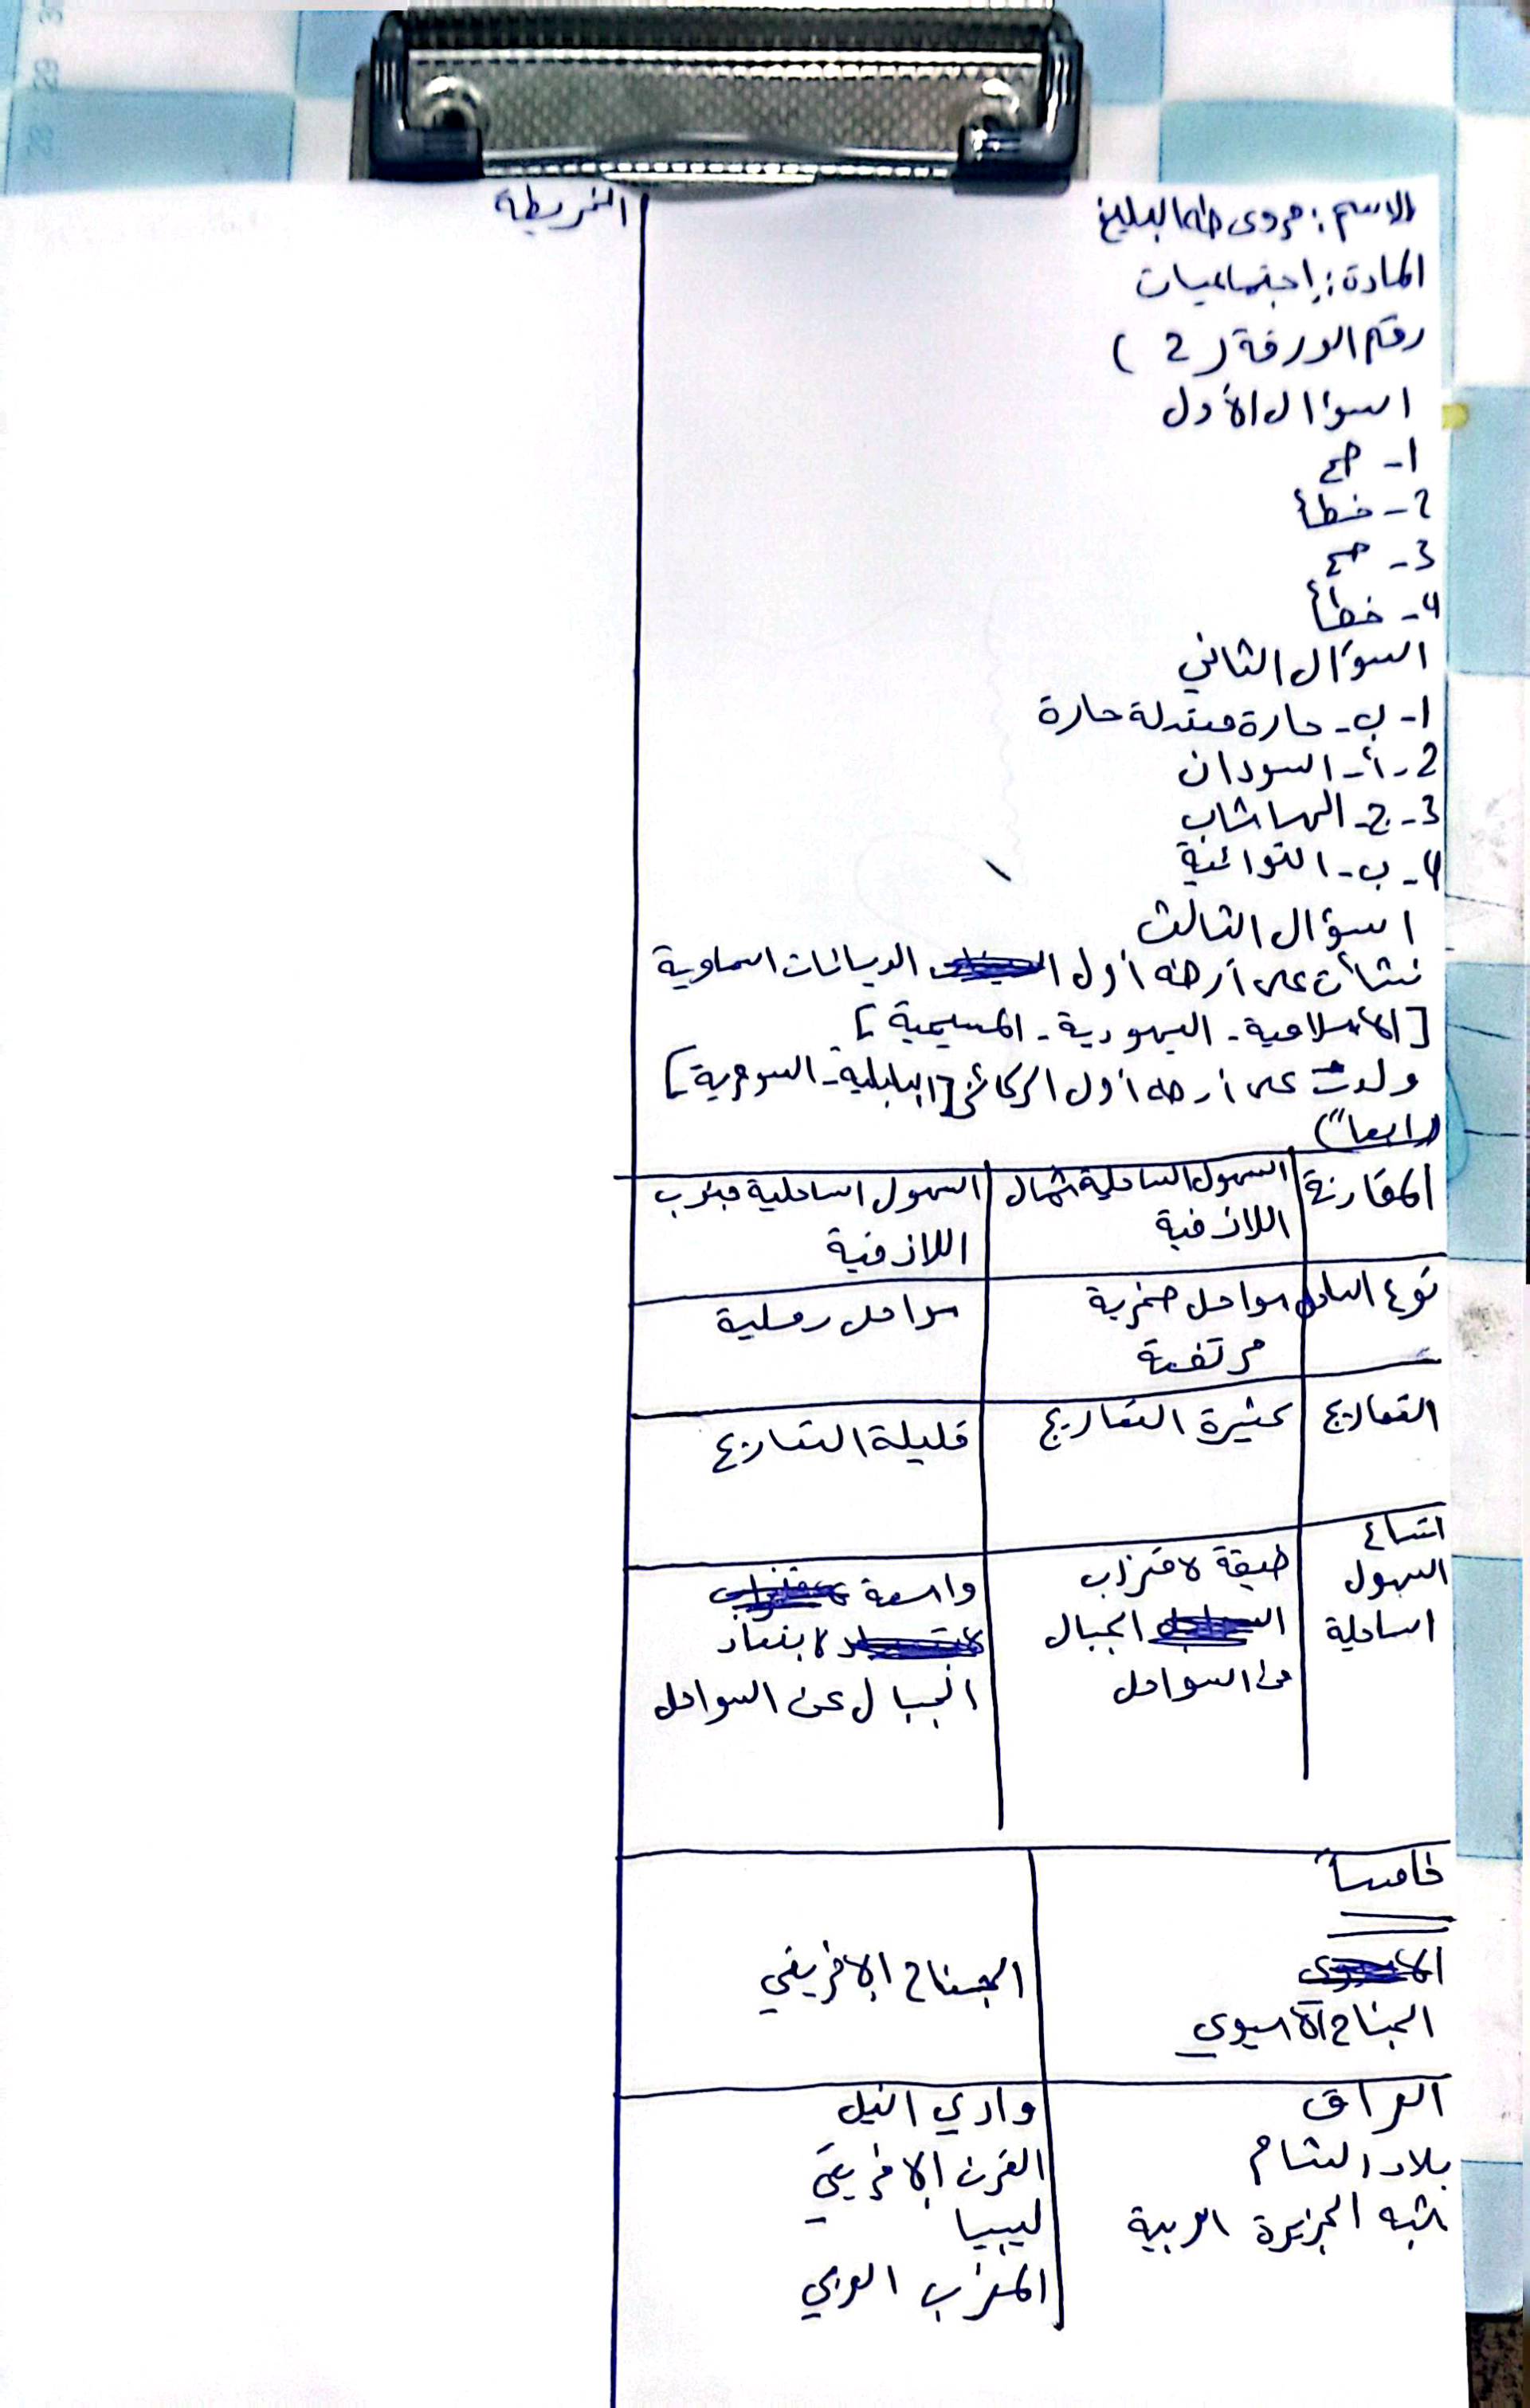 الاسم: مروى طه البليخ
المادة: إجتماعيات
رقم الورقة ( 2 )
اسؤال الأول
1- صح
2- خطأ
3- صح
4- خطأ
السؤال الثاني
1- ب- حارة معتدلة حارة
2- أ- السودان
3- ج- الهساشاب
4- ب- التوائية
اسؤال الثالث
نشأت على أرضه أول الديانات اسماوية
[الأسلامية - اليهودية - المسيحية]
ولدت على أرضه أول الركائز [البابلية - السومرية]
(رابعاً)
المقارنة السهول الساحلية شمال السهول اساحلية جنوب
اللاذقية اللاذقية
نوع الساحل سواحل صخرية سواحل رملية
مرتفعة
التعاريج كثيرة التعاريج قليلة التعاريج
اتساع
السهول ضيقة لاقتراب واسعة
اساحلية الجبال لابتعاد
من السواحل الجبال عن السواحل
خامساً
الجناح الآسيوي الجناح الإفريقي
العراق وادي النيل
بلاد الشام القرن الإفريقي
شبه الجزيرة العربية ليبيا
المغرب العربي
الخريطة